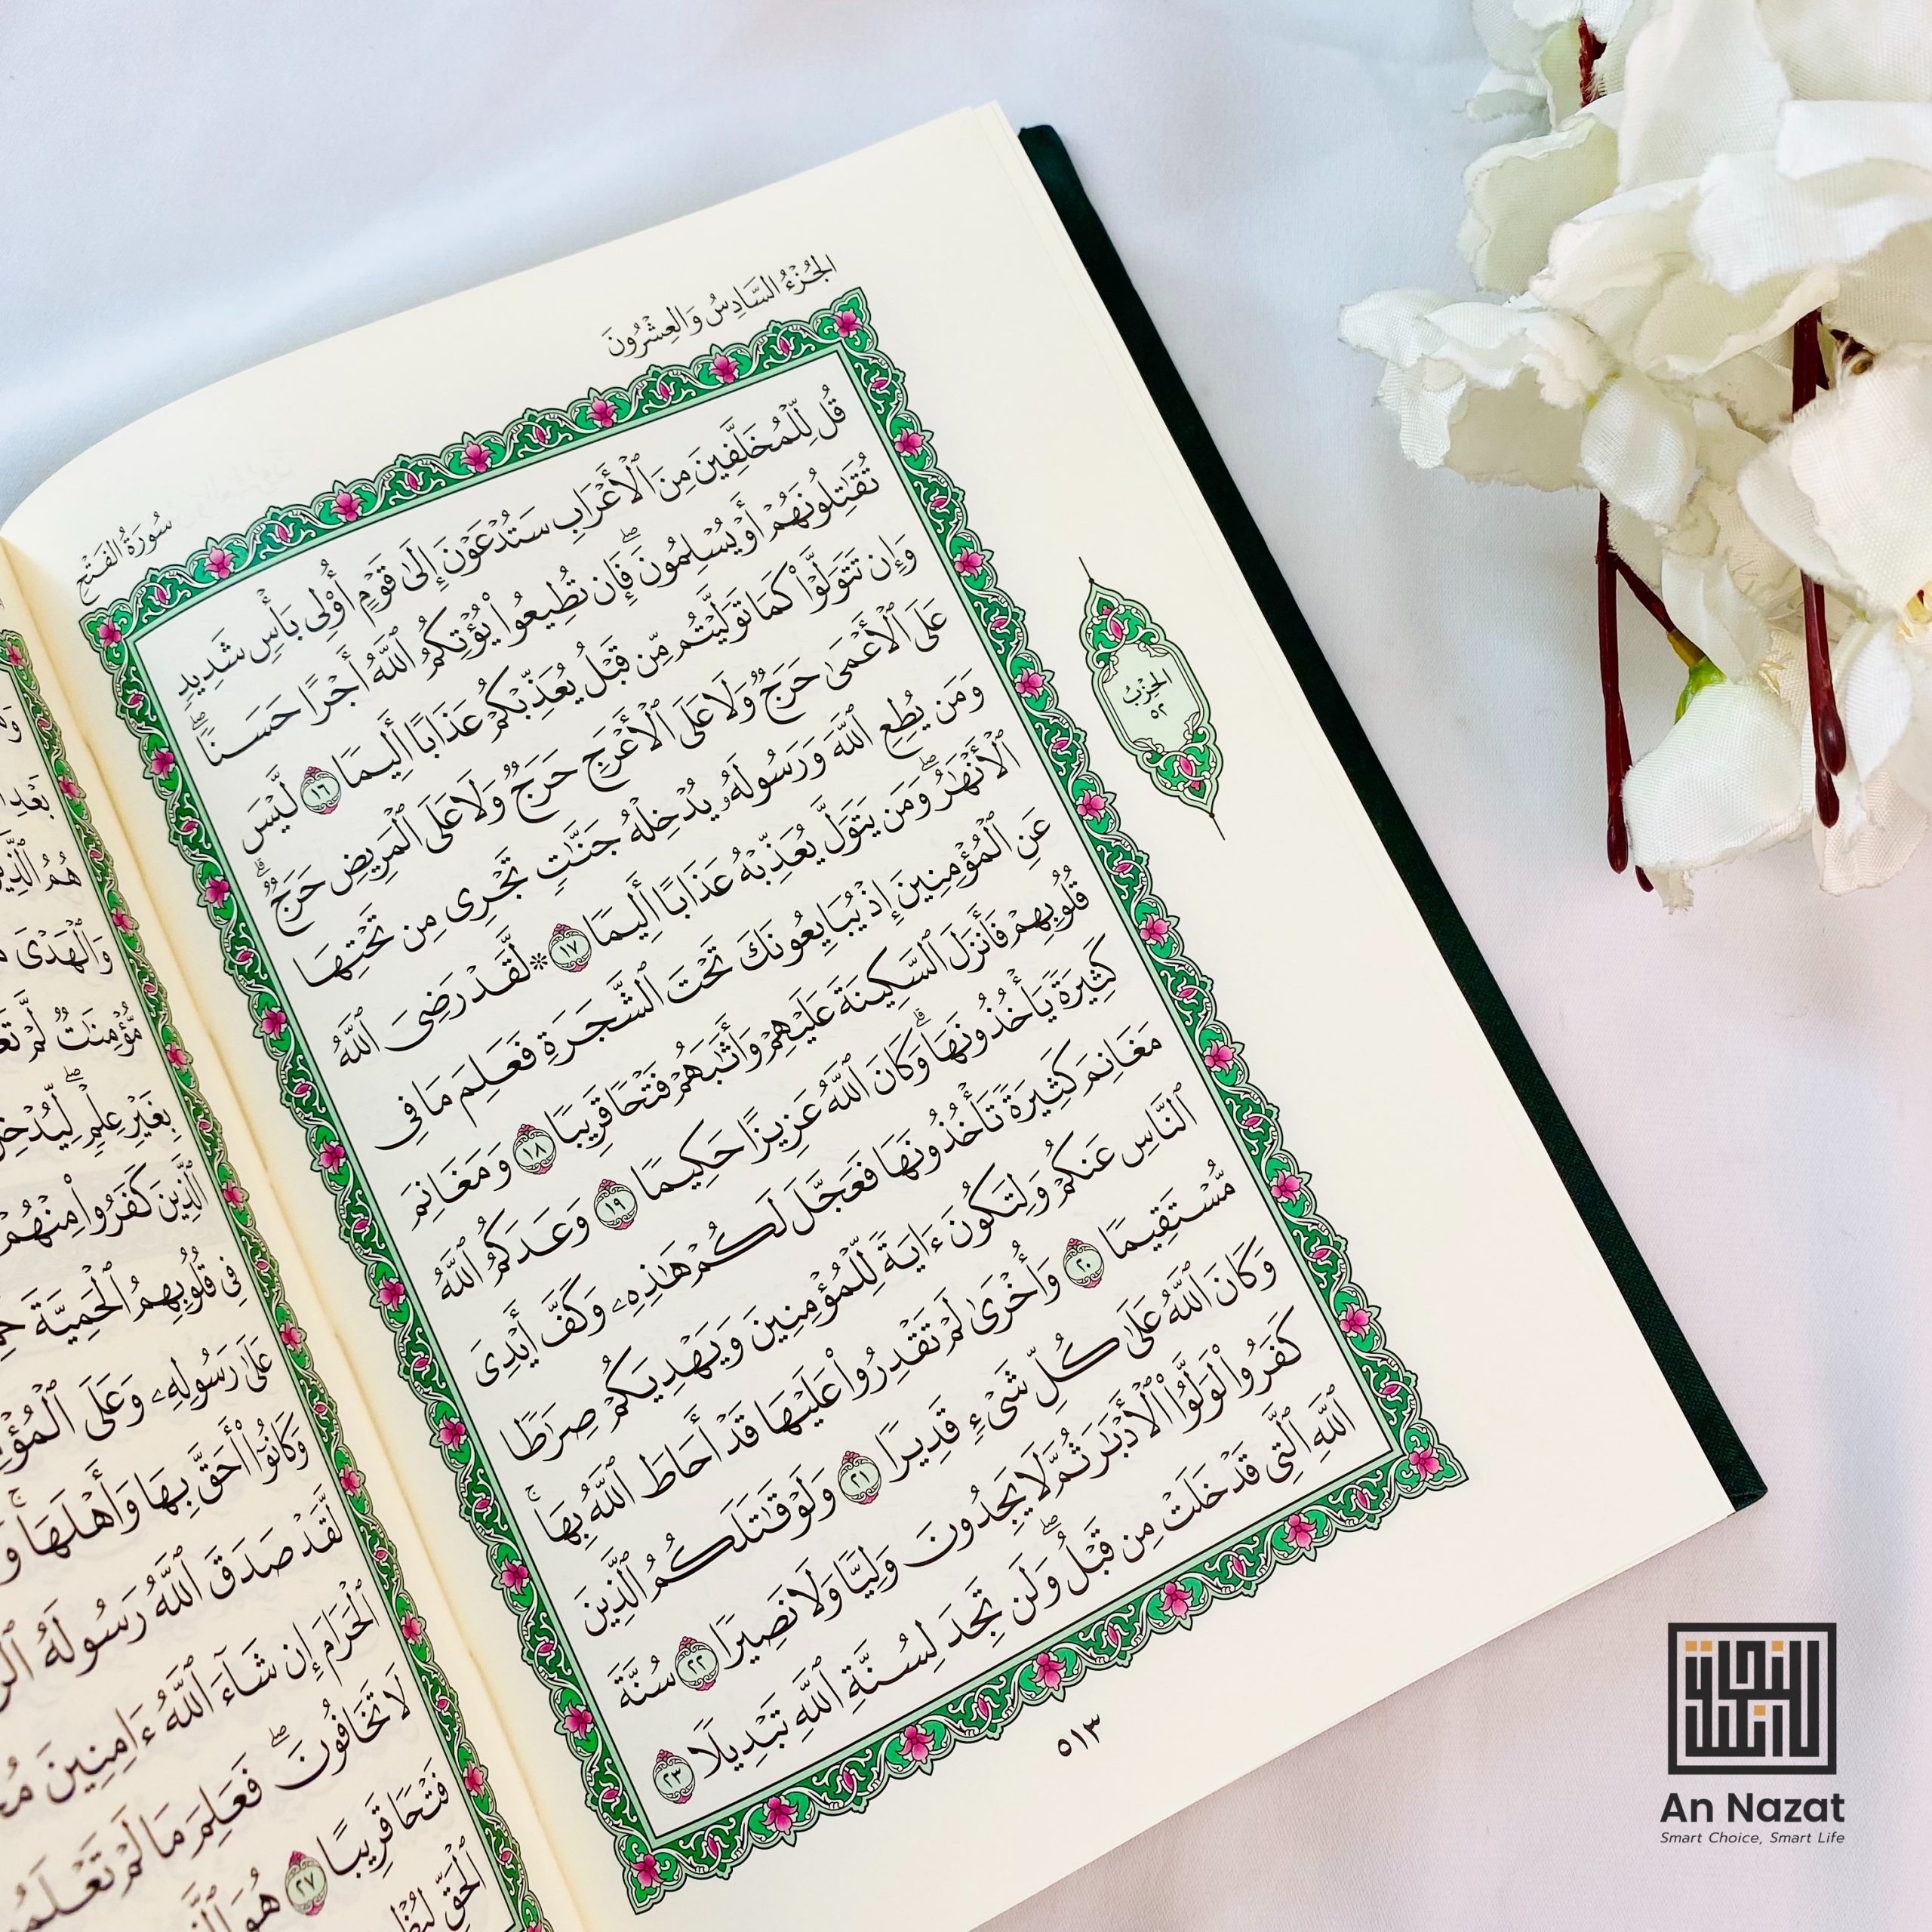 الجُزْءُ السَّادِسُ وَالعِشْرُونَ
سُورَةُ الفَتْحِ
قُل لِّلْمُخَلَّفِينَ مِنَ ٱلْأَعْرَابِ سَتُدْعَوْنَ إِلَىٰ قَوْمٍ أُو۟لِى بَأْسٍ شَدِيدٍ
تُقَٰتِلُونَهُمْ أَوْ يُسْلِمُونَۖ فَإِن تُطِيعُوا۟ يُؤْتِكُمُ ٱللَّهُ أَجْرًا حَسَنًاۖ
وَإِن تَتَوَلَّوْا۟ كَمَا تَوَلَّيْتُم مِّن قَبْلُ يُعَذِّبْكُمْ عَذَابًا أَلِيمًا ١٦ لَّيْسَ
عَلَى ٱلْأَعْمَىٰ حَرَجٌ وَلَا عَلَى ٱلْأَعْرَجِ حَرَجٌ وَلَا عَلَى ٱلْمَرِيضِ حَرَجٌۗ
وَمَن يُطِعِ ٱللَّهَ وَرَسُولَهُۥ يُدْخِلْهُ جَنَّٰتٍ تَجْرِى مِن تَحْتِهَا
ٱلْأَنْهَٰرُۖ وَمَن يَتَوَلَّ يُعَذِّبْهُ عَذَابًا أَلِيمًا ١٧ * لَّقَدْ رَضِىَ ٱللَّهُ
عَنِ ٱلْمُؤْمِنِينَ إِذْ يُبَايِعُونَكَ تَحْتَ ٱلشَّجَرَةِ فَعَلِمَ مَا فِى
قُلُوبِهِمْ فَأَنزَلَ ٱلسَّكِينَةَ عَلَيْهِمْ وَأَثَٰبَهُمْ فَتْحًا قَرِيبًا ١٨ وَمَغَانِمَ
كَثِيرَةً يَأْخُذُونَهَاۗ وَكَانَ ٱللَّهُ عَزِيزًا حَكِيمًا ١٩ وَعَدَكُمُ ٱللَّهُ
مَغَانِمَ كَثِيرَةً تَأْخُذُونَهَا فَعَجَّلَ لَكُمْ هَٰذِهِۦ وَكَفَّ أَيْدِىَ
ٱلنَّاسِ عَنكُمْ وَلِتَكُونَ ءَايَةً لِّلْمُؤْمِنِينَ وَيَهْدِيَكُمْ صِرَٰطًا
مُّسْتَقِيمًا ٢٠ وَأُخْرَىٰ لَمْ تَقْدِرُوا۟ عَلَيْهَا قَدْ أَحَاطَ ٱللَّهُ بِهَاۚ
وَكَانَ ٱللَّهُ عَلَىٰ كُلِّ شَىْءٍ قَدِيرًا ٢١ وَلَوْ قَٰتَلَكُمُ ٱلَّذِينَ
كَفَرُوا۟ لَوَلَّوُا۟ ٱلْأَدْبَٰرَ ثُمَّ لَا يَجِدُونَ وَلِيًّا وَلَا نَصِيرًا ٢٢ سُنَّةَ
ٱللَّهِ ٱلَّتِى قَدْ خَلَتْ مِن قَبْلُۖ وَلَن تَجِدَ لِسُنَّةِ ٱللَّهِ تَبْدِيلًا ٢٣
٥١٣
الحِزْبُ
٥٢
هُمُ ٱلَّذِينَ
وَٱلْهَدْىَ
مُّؤْمِنَٰتٌ لَّمْ
بِغَيْرِ عِلْمٍۖ لِّيُدْخِلَ
ٱلَّذِينَ كَفَرُوا۟ مِنْهُمْ
فِى قُلُوبِهِمُ ٱلْحَمِيَّةَ
عَلَىٰ رَسُولِهِۦ وَعَلَى
وَكَانُوٓا۟ أَحَقَّ بِهَا وَأَهْلَهَاۚ
لَّقَدْ صَدَقَ ٱللَّهُ رَسُولَهُ
ٱلْحَرَامَ إِن شَآءَ ٱللَّهُ ءَامِنِينَ
لَا تَخَافُونَۖ فَعَلِمَ مَا لَمْ
فَتْحًا قَرِيبًا ٢٧ هُوَ
An Nazat
Smart Choice, Smart Life